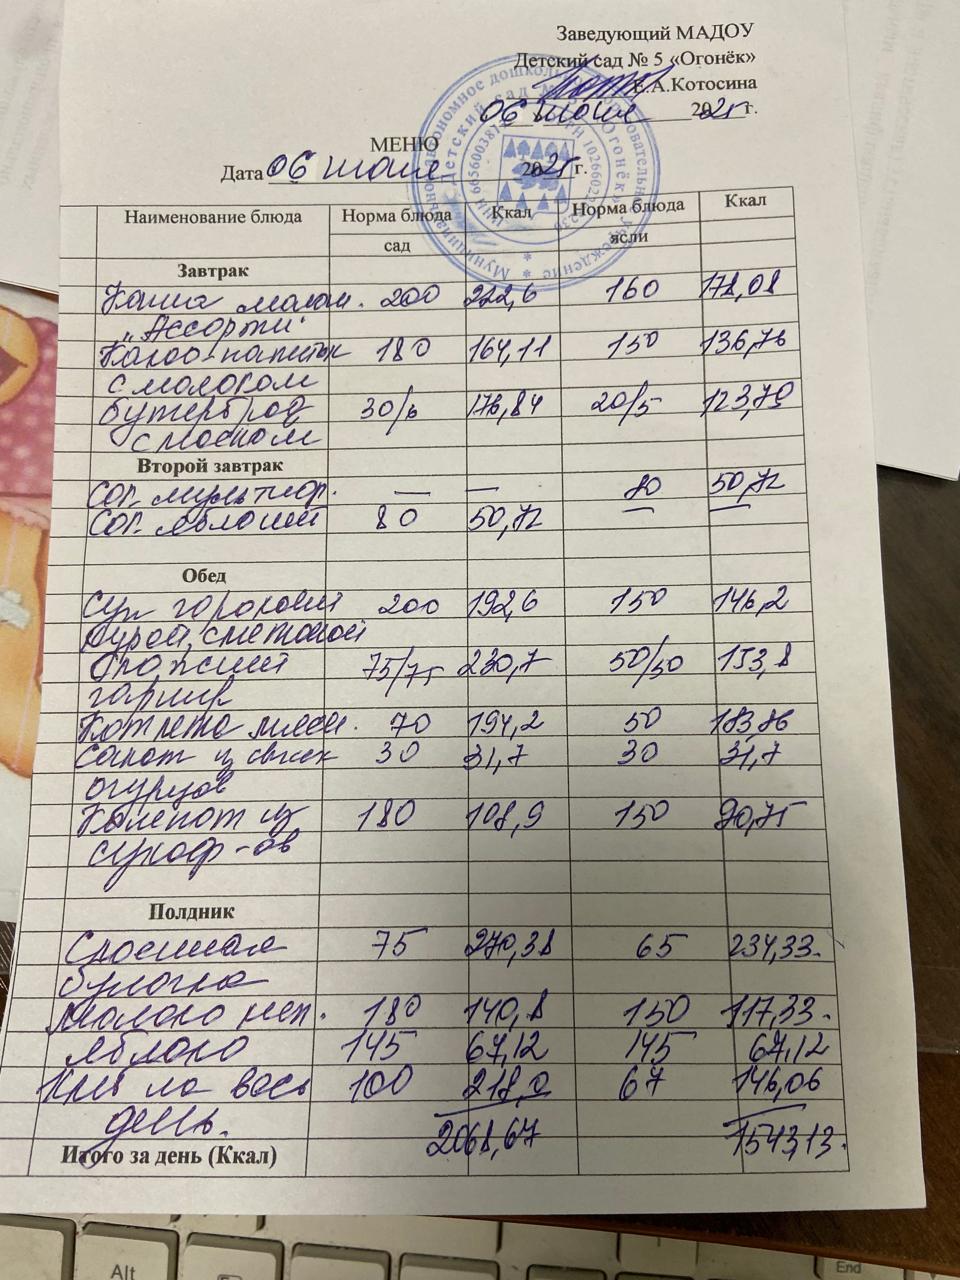 Заведующий МАДОУ
Детский сад № 5 «Огонёк»
Е.А.Котосина
06 июня 2025 г.
МЕНЮ
Дата 06 июня 2025 г.
Наименование блюда Норма блюда Ккал Норма блюда Ккал
сад ясли
Завтрак
Каша молоч. 200 222,6 160 178,08
"Ассорти"
Какао-напиток 180 164,11 150 136,76
с молоком
Бутерброд 30/6 176,84 20/5 123,79
с маслом
Второй завтрак
Сок мультифр. — — 80 50,72
Сок яблочный 80 50,72 — —
Обед
Суп гороховый 200 192,6 150 146,2
курой, сметаной
Сложный 75/75 230,7 50/50 153,8
гарнир
Котлета мясн. 70 194,2 50 183,86
Салат из свеж 30 31,7 30 31,7
огурцов
Компот из 180 108,9 150 90,75
сухоф-ов
Полдник
Слоенная 75 270,38 65 234,33.
булочка
Молоко кип. 180 140,8 150 117,33.
Яблоко 145 67,12 145 67,12
Хлеб на весь 100 218,0 67 146,06
день.
2068,67 1543,13.
Итого за день (Ккал)
Alt
End